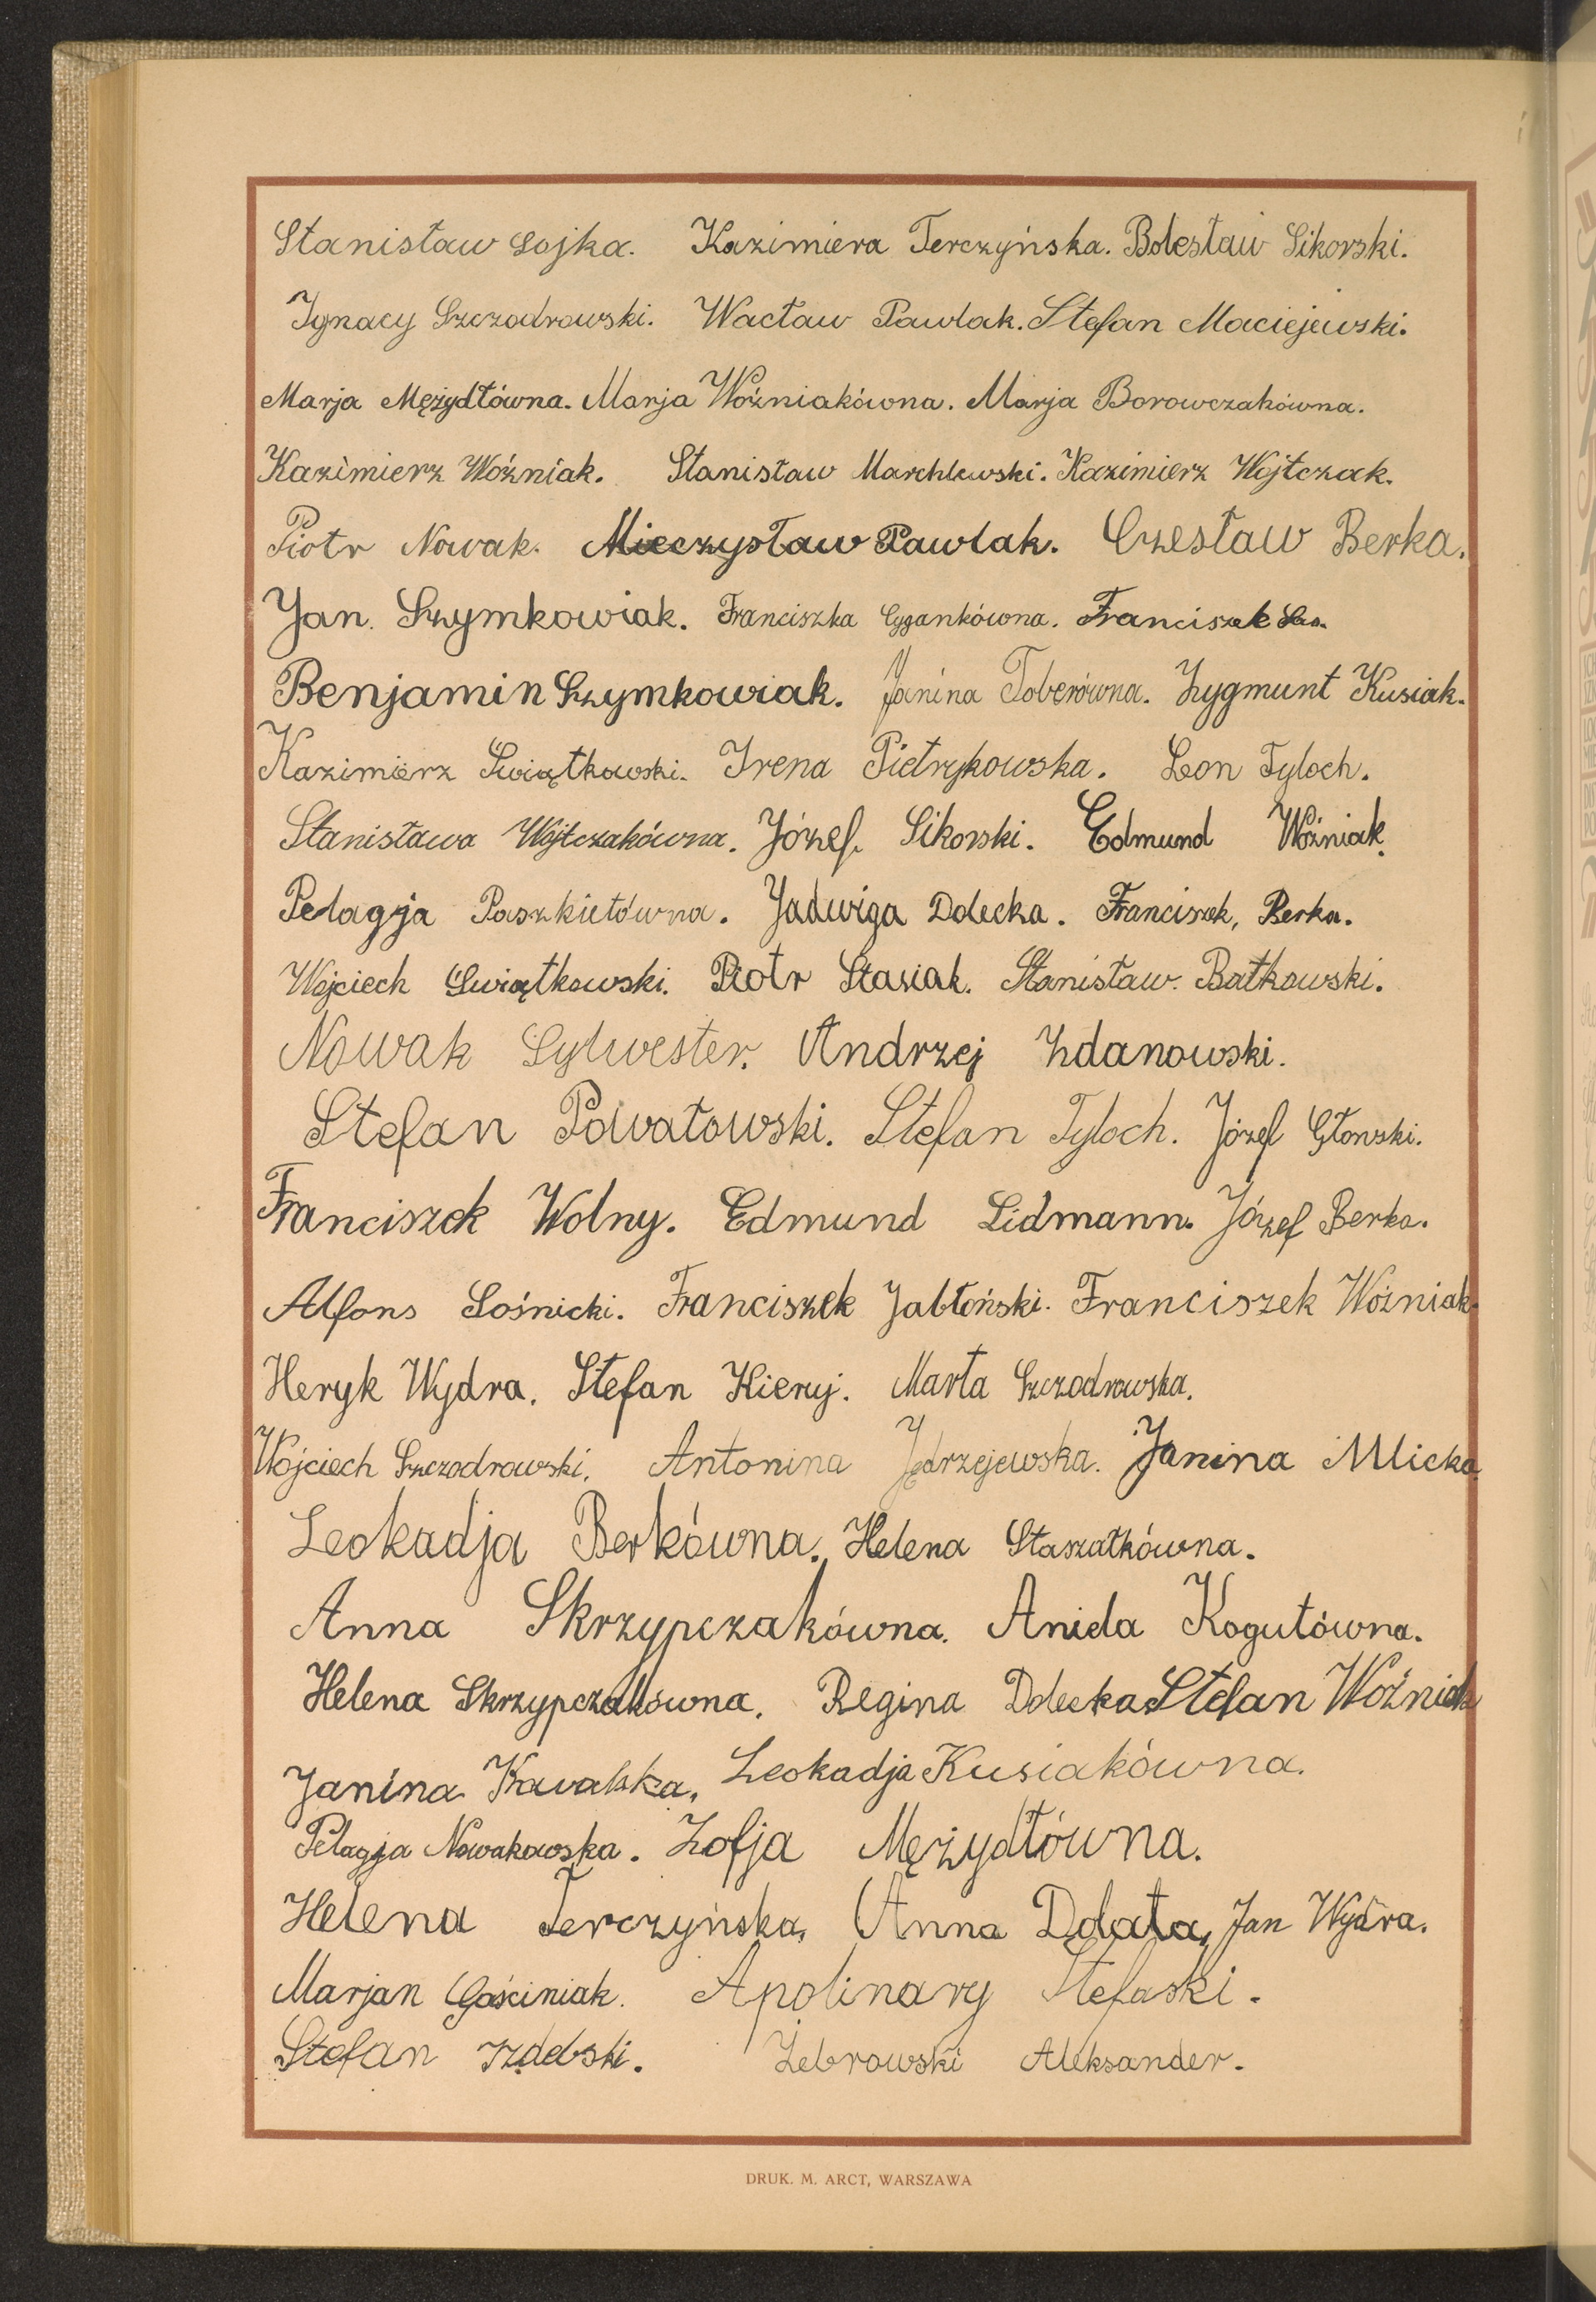 Stanisław Sojka. Kazimiera Terczyńska. Bolesław Sikorski.
Ignacy Szczodrowski. Wacław Pawlak. Stefan Maciejewski.
Marja Mężydłówna. Marja Woźniakówna. Marja Borowczakówna.
Kazimierz Woźniak. Stanisław Marchlewski. Kazimierz Wojtczak.
Piotr Nowak. Mieczysław Pawlak. Czesław Berka.
Jan Szymkowiak. Franciszka Cygankówna. Franciszek
Benjamin Szymkowiak. Janina Toberówna. Zygmunt Kusiak.
Kazimierz Swiątkowski. Irena Pietrykowska. Leon Tyloch.
Stanisława Wojtczakówna. Józef Sikorski. Edmund Woźniak.
Pelagja Paszkietówna. Jadwiga Dolecka. Franciszek, Berka.
Wojciech Swiątkowski. Piotr Stasiak. Stanisław Batkowski.
Nowak Sylwester. Andrzej Zdanowski.
Stefan Powałowski. Stefan Tyloch. Józef Głowski.
Franciszek Wolny. Edmund Lidmann. Józef Berka.
Alfons Sośnicki. Franciszek Jabłoński. Franciszek Woźniak.
Heryk Wydra. Stefan Kieruj. Marta Szczodrowska.
Wojciech Szczodrowski. Antonina Jędrzejewska. Janina Mlicka.
Leokadja Berkówna. Helena Staszałkówna.
Anna Skrzypczakówna. Aniela Kogutówna.
Helena Skrzypczakówna. Regina Dolecka Stefan Woźniak
Janina Kowalska. Leokadja Kusiakówna.
Pelagja Nowakowska. Zofja Mężydłówna.
Helena Terczyńska, Anna Dolata, Jan Wydra.
Marjan Gościniak. Apolinary Stefaski.
Stefan Izdebski. Żebrowski Aleksander.
DRUK. M. ARCT, WARSZAWA